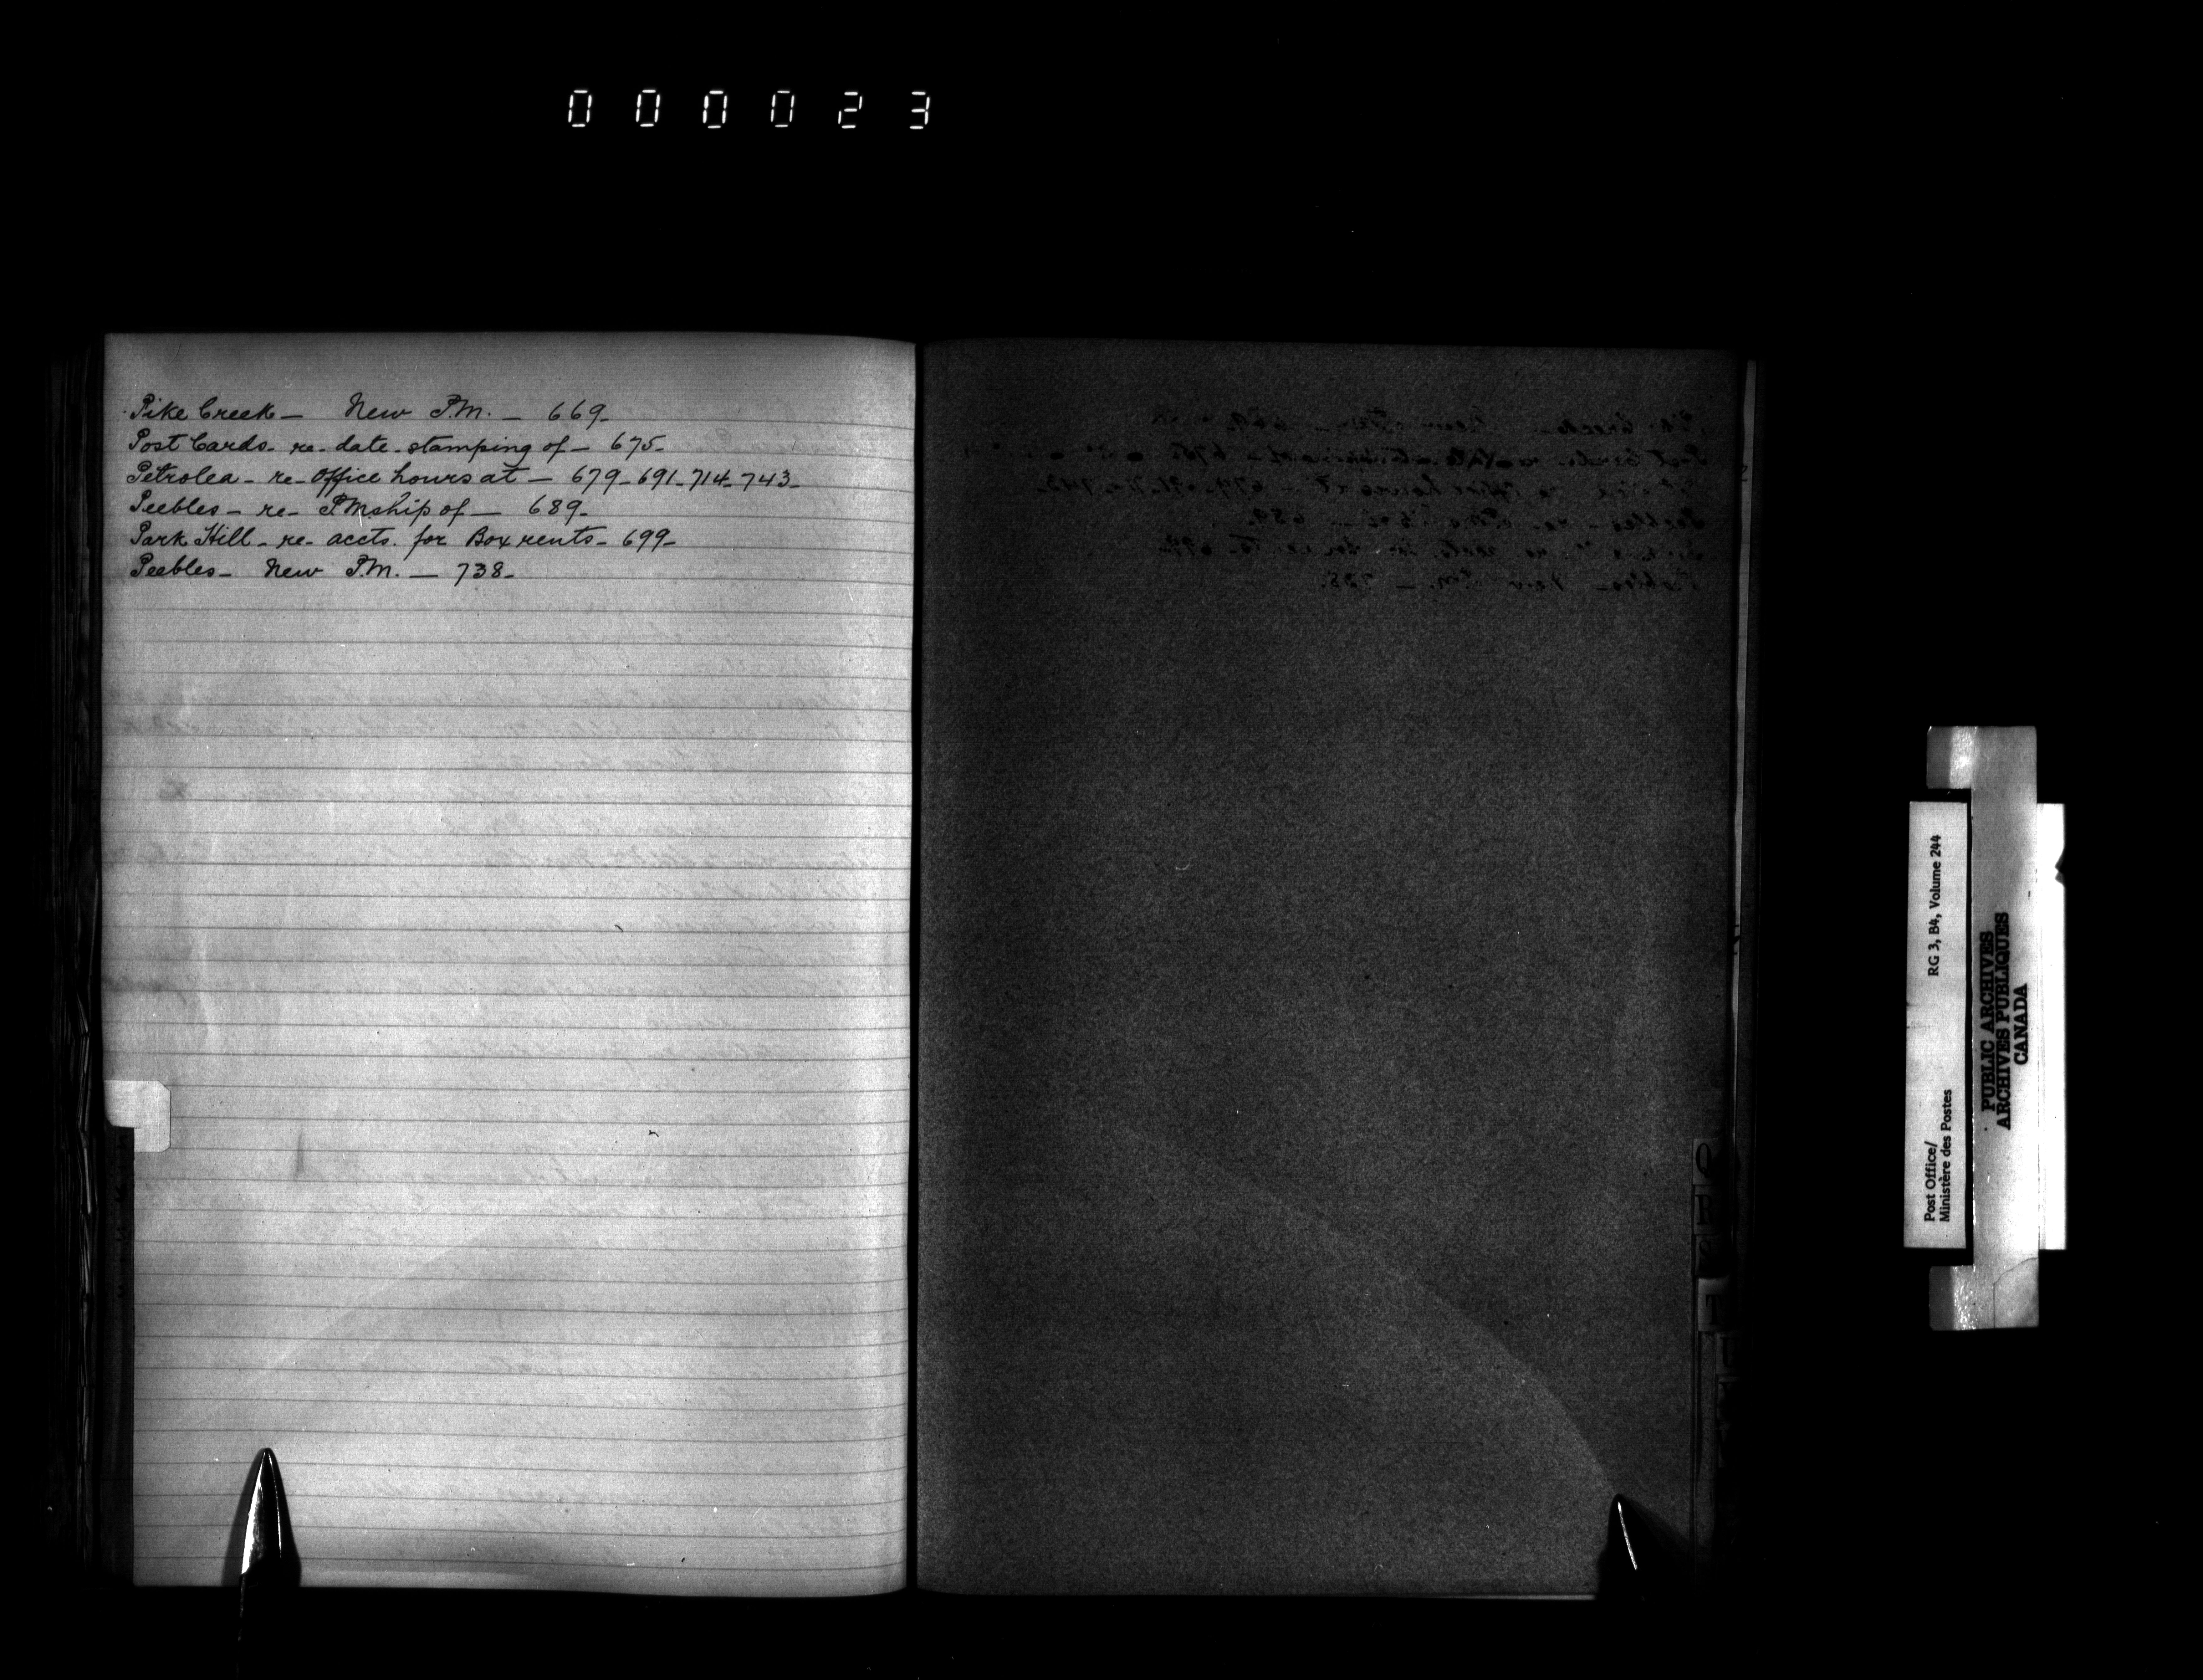 000023
Pike Creek — New P.M. — 669—
Post Cards— re— date-stamping of — 675—
Petrolea — re— Office hours at — 679—691—714—743—
Peebles — re— P.M.ship of — 689—
Park Hill — re— accts. for Box rents — 699—
Peebles — New P.M. — 738—
Q
R
S
T
Post Office/
Ministère des Postes
RG 3, B4, Volume 244
PUBLIC ARCHIVES
ARCHIVES PUBLIQUES
CANADA